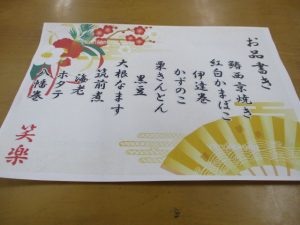 お品書き
鰆西京焼き
紅白かまぼこ
伊達巻
かずのこ
栗きんとん
黒豆
大根なます
筑前煮
海老
ホタテ
八幡巻
笑楽